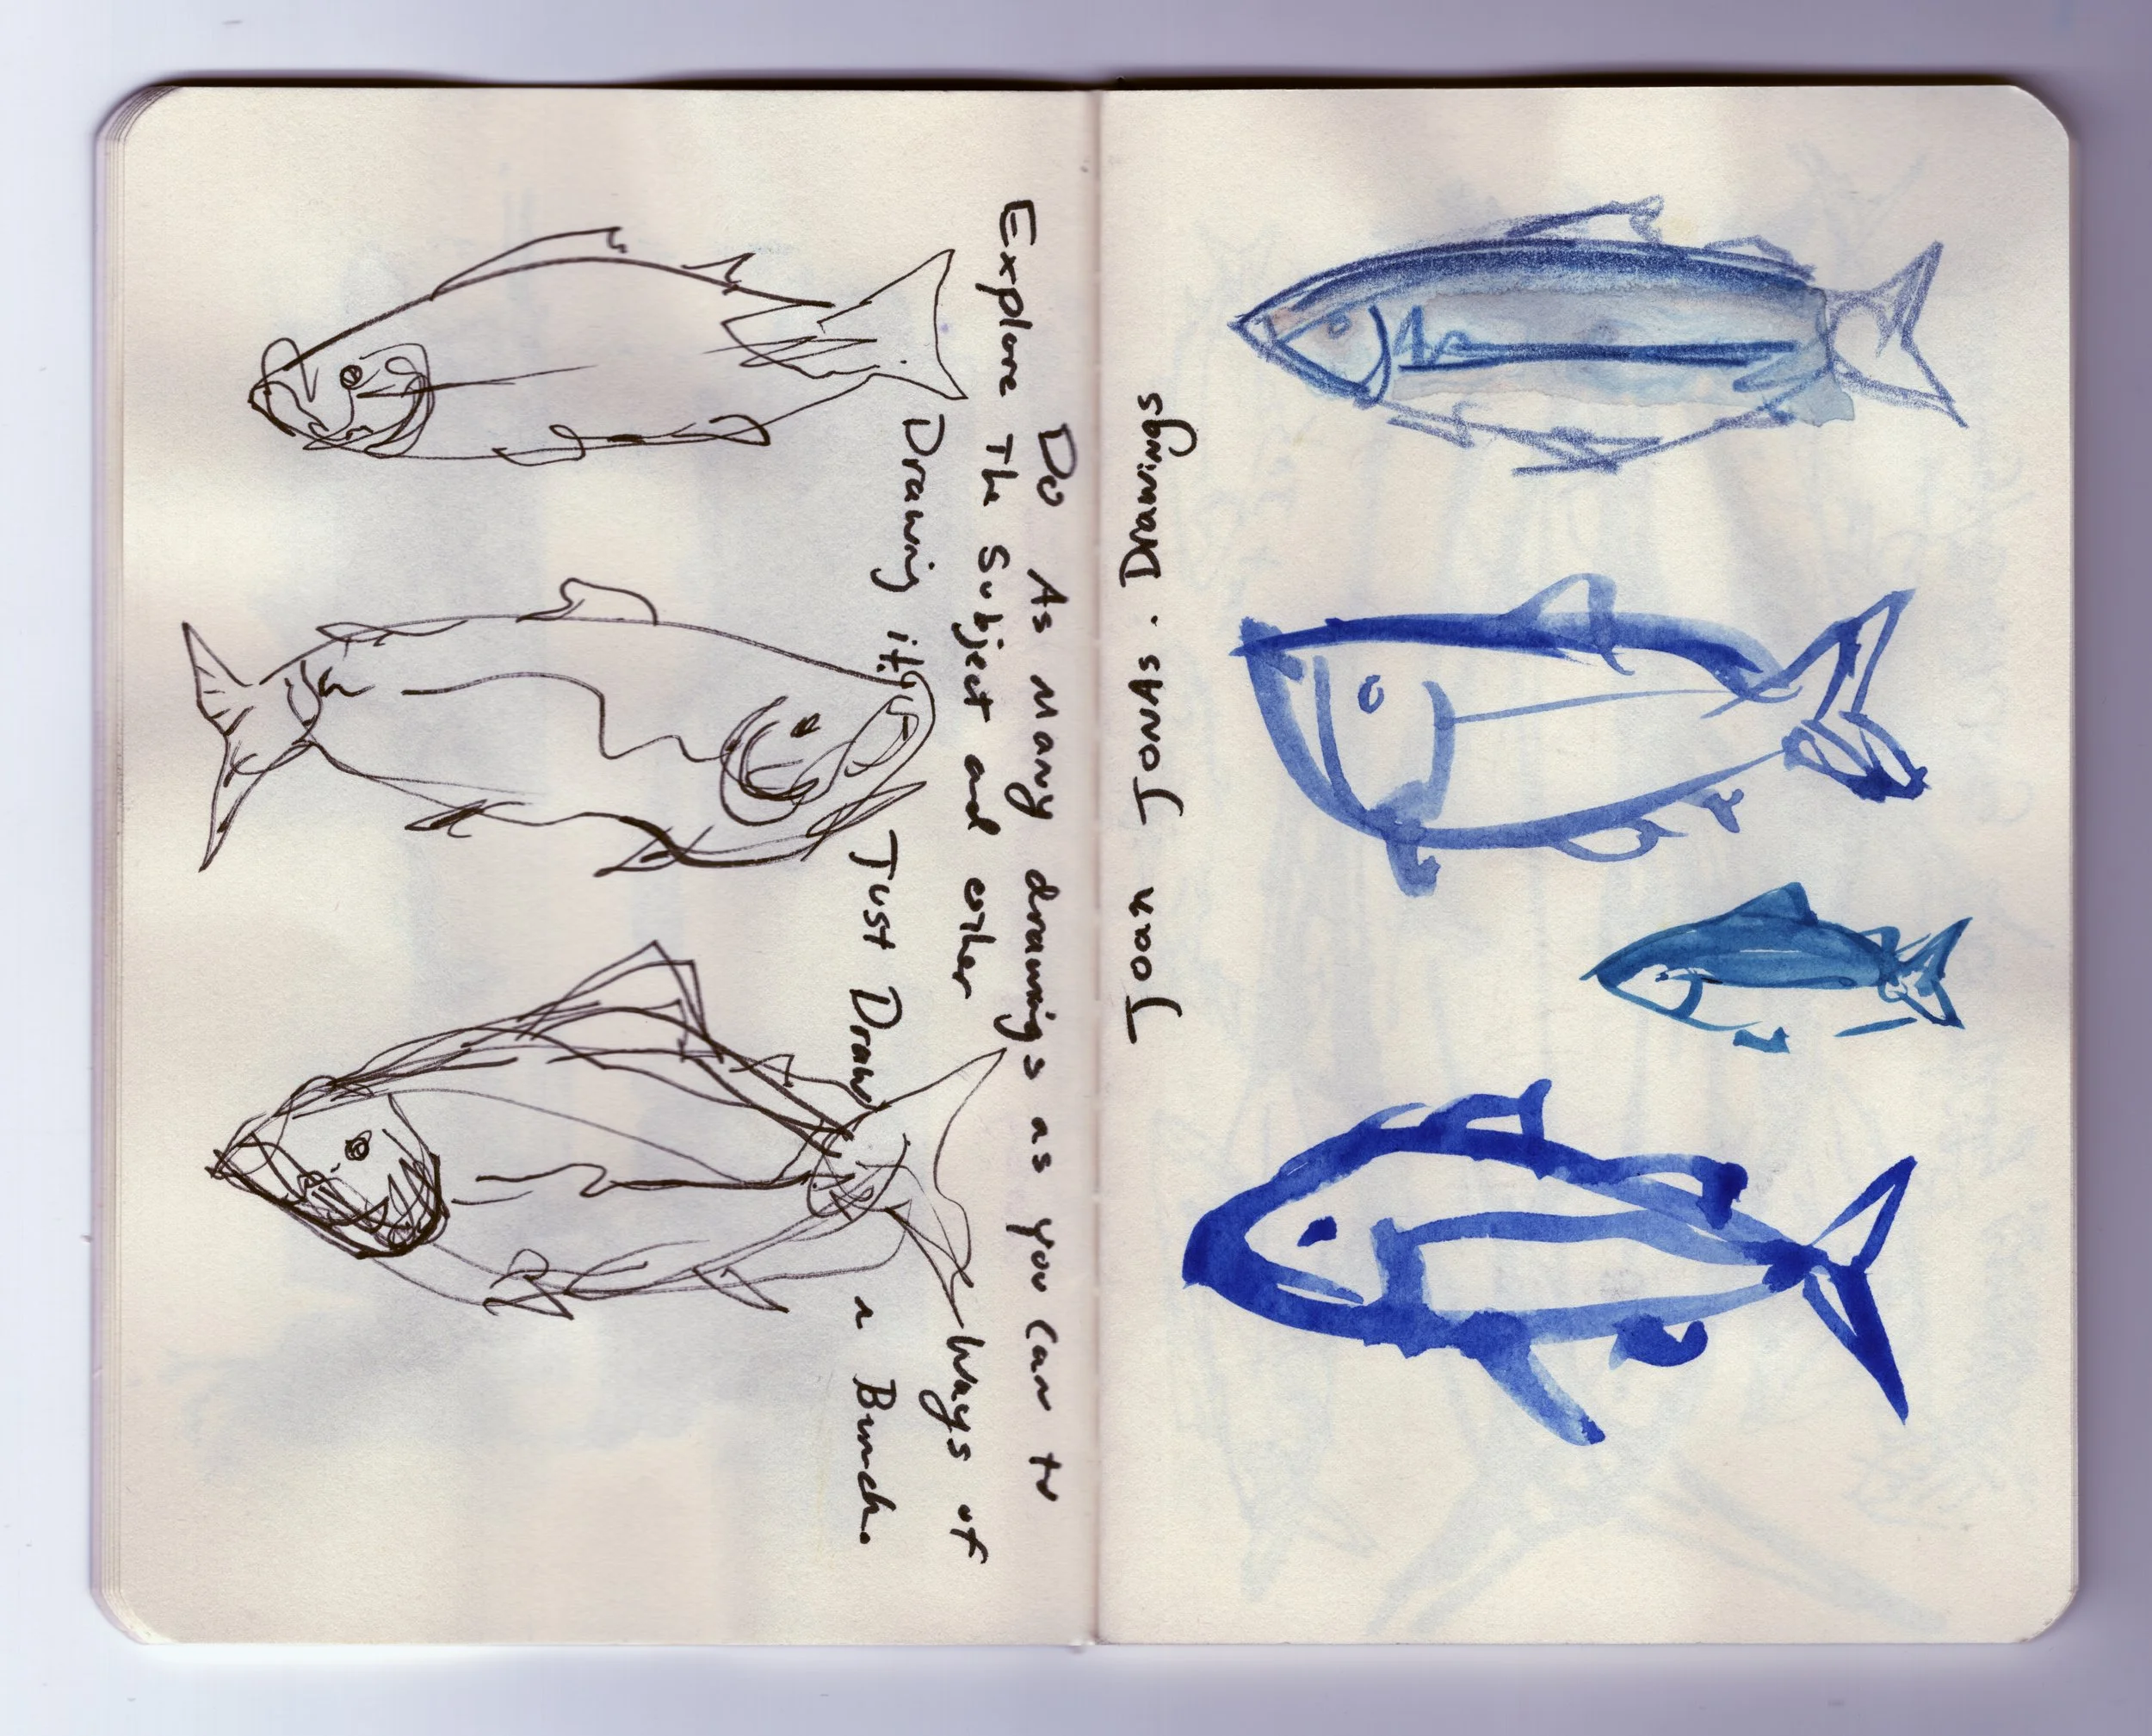 Do As many drawings as you can to
Explore The Subject and other Ways of
Drawing it!! Just Draw a Bunch.
Joan JONAS. Drawings